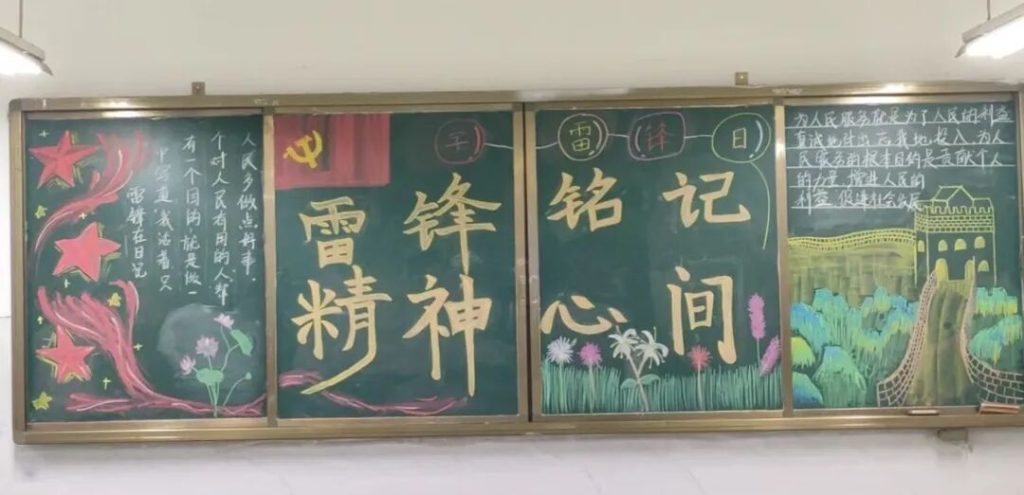 雷锋在日记
中写道 我活着只
有一个目的,就是做一
个对人民有用的人,帮
人民多做点好事.
雷锋日
雷锋
精神
铭记
心间
为人民服务就是为了人民的利益
真诚地付出 忘我地投入,为人
民服务的根本目的是贡献个人
的力量,增进人民的
利益 促进社会发展